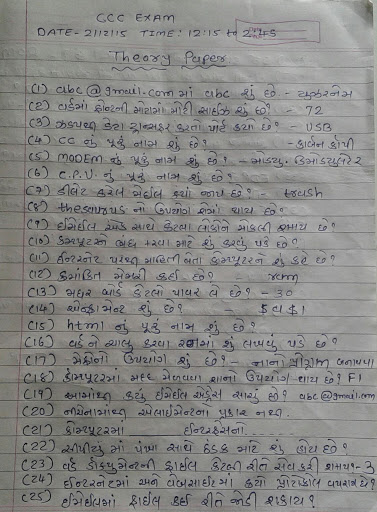 CCC EXAM
DATE - 21/12/15 TIME: 12:15 to
Theory Paper
(1) abc@gmail.com માં abc શું છે - યુઝરનેમ
(2) વર્ડમાં ફોન્ટની મોટામાં મોટી સાઈઝ શું છે? - 72
(3) ઝડપથી ડેટા ટ્રાન્સફર કરતા પોર્ટ કયા છે? - USB
(4) CC નું પૂરું નામ શું છે? - કાર્બન કોપી
(5) MODEM નું પૂરું નામ શું છે? - મોડ્યુ. ડિમોડ્યુલેટર
(6) C.P.U. નું પૂરું નામ શું છે?
(7) ડીલેટ કરેલ મેઈલ ક્યાં જાય છે? - trash
(8) thesaurus ના ઉપયોગ શેમાં થાય છે?
(9) ઈમેઈલ એક સાથે કેટલા લોકોને મોકલી શકાય છે?
(10) કોમ્પ્યુટરને બંધ કરવા માટે શું કરવું પડે છે?
(11) ઈન્ટરનેટ પરથી માહિતી લેતા કોમ્પ્યુટરને શું કહે છે?
(12) કાયમી મેમરી કઈ છે? - rom
(13) મધર બોર્ડ કેટલો પાવર લે છે? - 30
(14) એલાઈમેન્ટ શું છે? -
(15) html નું પૂરું નામ શું છે?
(16) વર્ડને ચાલુ કરવા રનમાં શું લખવું પડે છે?
(17) મેક્રોનો ઉપયોગ શું છે? - નાના પ્રોગ્રામ બનાવવા
(18) કોમ્પ્યુટરમાં મદદ મેળવવા શાનો ઉપયોગ થાય છે? F1
(19) આમાંથી કયું ઈમેઈલ એડ્રેસ સાચું છે? abc@gmail.com
(20) નીચેનામાંથી એલાઈમેન્ટનો પ્રકાર નથી.
(21) કોમ્પ્યુટરમાં ઈન્ટરફેસનો
(22) સીપીયુમાં પંખા સાથે ઠંડક માટે શું હોય છે?
(23) વર્ડ ડોક્યુમેન્ટની ફાઈલ કેટલી રીતે સેવ કરી શકાય - 3
(24) ઈન્ટરનેટમાં અને વેબસાઈટમાં ક્યો પ્રોટોકોલ વપરાય છે?
(25) ઈમેઈલમાં ફાઈલ કઈ રીતે જોડી શકાય?